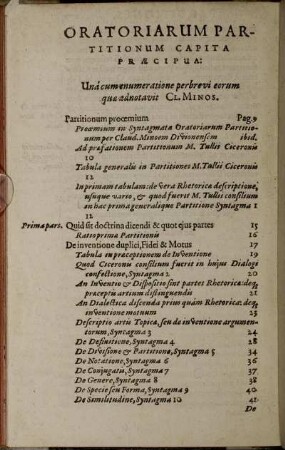 ORATORIARUM PAR-
TITIONUM CAPITA
PRÆCIPUA:
Unà cum enumeratione perbrevi eorum
quæ adnotavit CL. MINOS.
Partitionum proœmium Pag. 9
Proœmium in Syntagmata Oratoriarum Partitio-
num per Claud. Minoem Divionensem ibid.
Ad præfationem Partitionum M. Tullii Ciceronis
10
Tabula generalis in Partitiones M. Tullii Ciceronis
12
In primam tabulam: de vera Rhetoricæ descriptione,
usuque vario, & quod fuerit M. Tullii consilium
in hac prima generalique Partitione Syntagma 1
12
Prima pars. Quid sit doctrina dicendi & quot ejus partes 15
Ratio prima Partitionis 16
De inventione duplici, Fidei & Motus 17
Tabula in præceptionem de Inventione 19
Quod Ciceronis consilium fuerit in hujus Dialogi
confectione, Syntagma 2 20
An Inventio & Dispositio sint partes Rhetoricæ: de
præceptis artium distinguendis 21
An Dialectica discenda prius quàm Rhetorica: de
inventione motuum 23
Descriptio artis Topicæ, seu de inventione argumen-
torum, Syntagma 3 24
De Definitione, Syntagma 4 28
De Divisione & Partitione, Syntagma 5 34
De Notatione, Syntagma 6 36
De Conjugatis, Syntagma 7 37
De Genere, Syntagma 8 38
De Specie seu Forma, Syntagma 9 40
De Similitudine, Syntagma 10 42
De